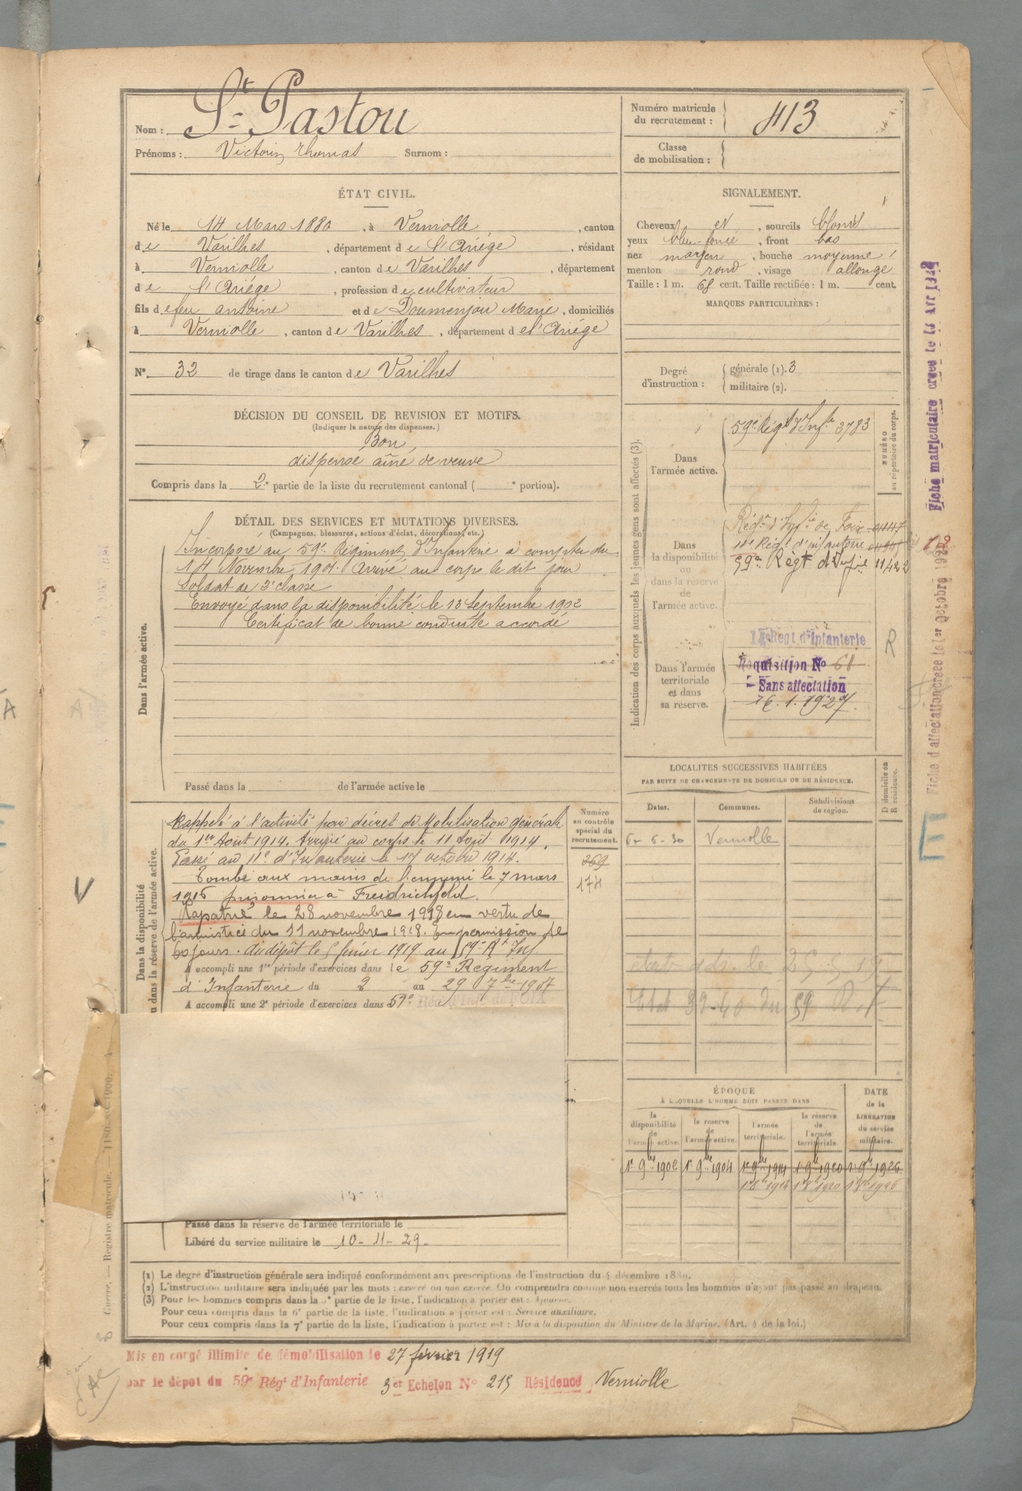 Nom : St Pastou
Prénoms : Victorin, Thomas Surnom :
Numéro matricule du recrutement : 413
Classe de mobilisation :
ÉTAT CIVIL.
Né le 14 Mars 1880, à Verniolle, canton
de Varilhes, département de l'Ariége, résidant
à Verniolle, canton de Varilhes, département
de l'Ariége, profession de cultivateur
fils de feu antoine et de Doumenjou Marie, domiciliés
à Verniolle, canton de Varilhes, département de l'Ariége
N° 32 de tirage dans le canton de Varilhes
SIGNALEMENT.
Cheveux et, sourcils blond
yeux bleu foncé, front bas
nez moyen, bouche moyenne
menton rond, visage allongé
Taille : 1 m. 68 cent. Taille rectifiée : 1 m. cent.
MARQUES PARTICULIÈRES :
Degré d'instruction : générale (1). 3
militaire (2).
DÉCISION DU CONSEIL DE REVISION ET MOTIFS.
(Indiquer la nature des dispenses.)
Bon
dispensé aîné de veuve
Compris dans la 2e partie de la liste du recrutement cantonal ( e portion).
DÉTAIL DES SERVICES ET MUTATIONS DIVERSES.
(Campagnes, blessures, actions d'éclat, décorations, etc.)
Dans l'armée active.
Incorporé au 59e Régiment d'Infanterie à compter du
14 Novembre 1901. Arrivé au corps le dit jour
Soldat de 2e classe
Envoyé dans la disponibilité le 13 Septembre 1902
Certificat de bonne conduite accordé
Passé dans de l'armée active le
Indication des corps auxquels les jeunes gens sont affectés (3).
NUMÉRO au répertoire du corps.
Dans l'armée active.
59e Régt d'Infie 3783
Dans la disponibilité ou dans la réserve de l'armée active.
Régt d'Infie de Foix
11e Régt d'infanterie
59e Régt d'Infie 11422
Dans l'armée territoriale et dans sa réserve.
Régt d'Infanterie
Réquisition N° 61
Sans affectation
26.1.1927
R
LOCALITÉS SUCCESSIVES HABITÉES
PAR SUITE DE CHANGEMENTS DE DOMICILE OU DE RÉSIDENCE.
Dates. Communes. Subdivisions de région. D domicile ou R résidence.
6-5-30 Verniolle
Dans la disponibilité ou dans la réserve de l'armée active.
Numéro au contrôle spécial du recrutement.
269
174
Rappelé à l'activité par décret de Mobilisation générale
du 1er Août 1914. Arrivé au corps le 11 Août 1914.
Passé au 11e d'Infanterie le 17 octobre 1914.
Tombé aux mains de l'ennemi le 7 mars
1916 prisonnier à Freidrichfeld.
Rapatrié le 28 novembre 1918 en vertu de
l'armistice du 11 novembre 1918. En permission de
60 jours. au dépôt le 5 février 1919 au 59e Rt Inf
A accompli une 1re période d'exercices dans le 59e Regiment
d'Infanterie du 2 au 29 7bre 1907
A accompli une 2e période d'exercices dans 59e
Passé dans la réserve de l'armée territoriale le
Libéré du service militaire le 10-11-29
ÉPOQUE
À LAQUELLE L'HOMME DOIT PASSER DANS
la disponibilité de l'armée active. la réserve de l'armée active. l'armée territoriale. la réserve de l'armée territoriale. DATE de la LIBÉRATION du service militaire.
1er 9bre 1902 1er 9bre 1904 1er 9bre 1914 1er 9bre 1920 1er 9bre 1926
(1) Le degré d'instruction générale sera indiqué conformément aux prescriptions de l'instruction du 4 décembre 1889.
(2) L'instruction militaire sera indiquée par les mots : exercé ou non exercé. On comprendra comme non exercés tous les hommes n'ayant pas passé au drapeau.
(3) Pour les hommes compris dans la 5e partie de la liste, l'indication à porter est : Ajourné.
Pour ceux compris dans la 6e partie de la liste, l'indication à porter est : Service auxiliaire.
Pour ceux compris dans la 7e partie de la liste, l'indication à porter est : Mis à la disposition du Ministre de la Marine. (Art. 4 de la loi.)
Mis en congé illimité de démobilisation le 27 février 1919
par le dépôt du 59e Rég't d'Infanterie 3er Echelon N° 215 Résidence Verniolle